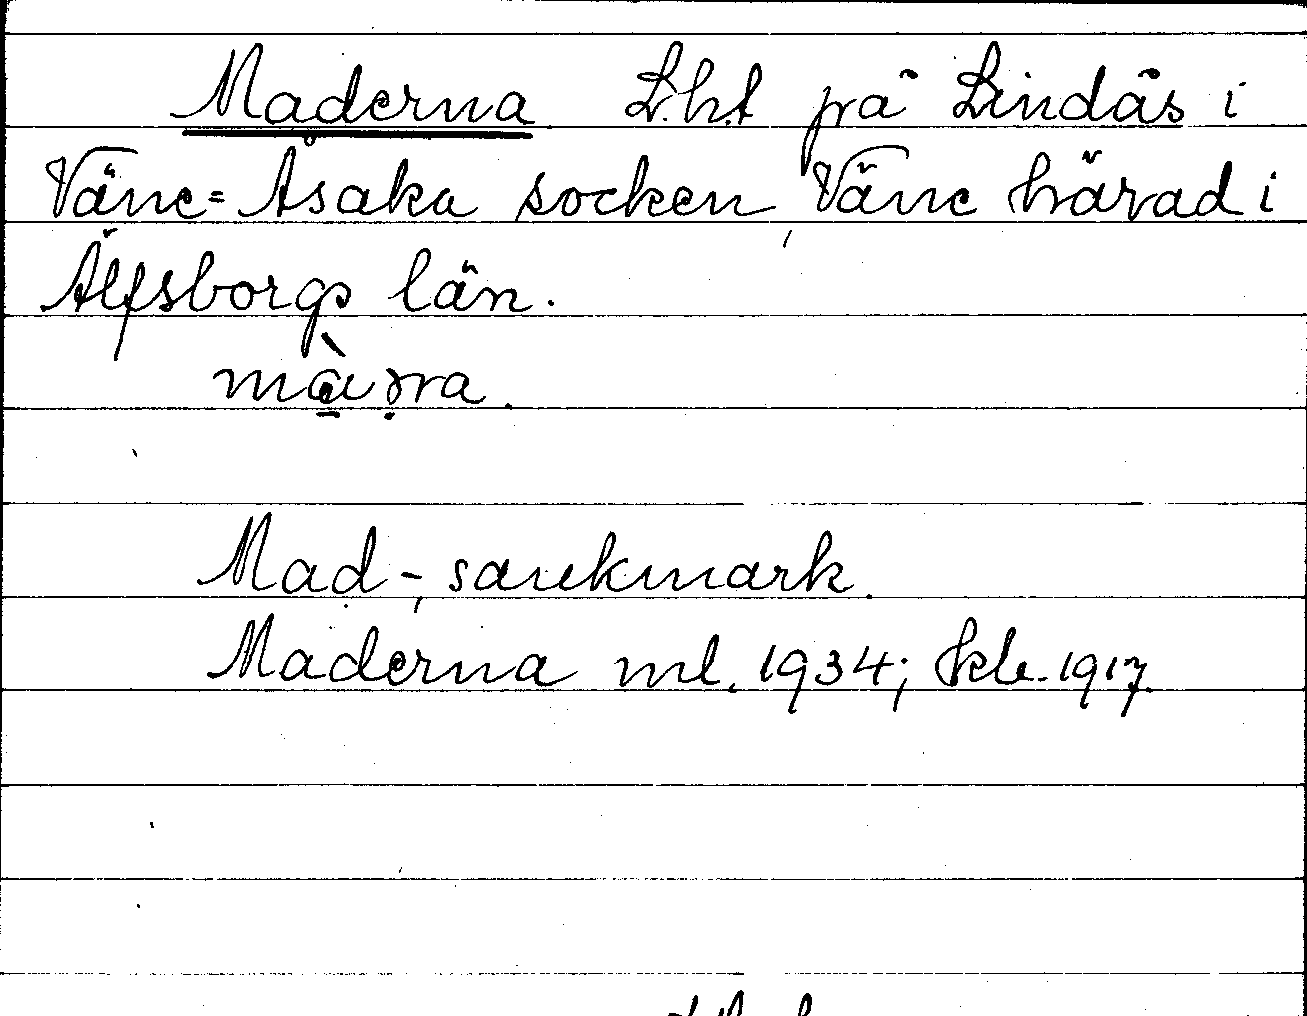 Maderna L.h.t på Lindås i
Väne=Åsaka socken, Väne härad i
Älfsborgs län.
Mad-, sankmark.
Maderna ml. 1934; skle. 1917.